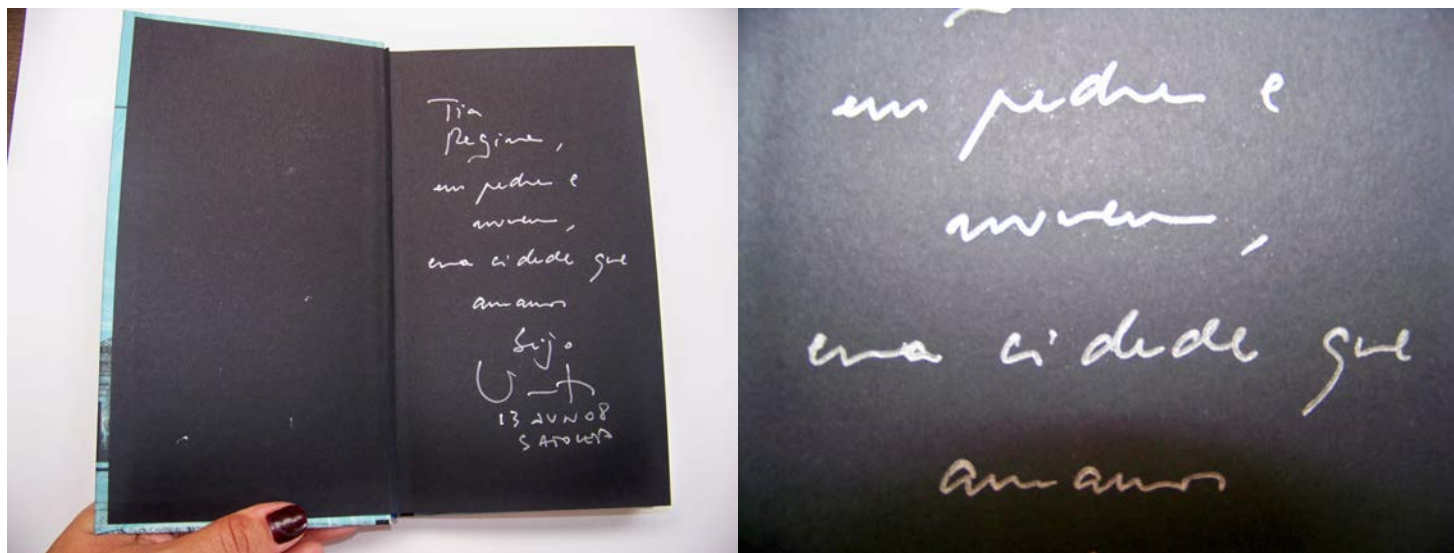 Tia
Regina,
em pedra e
nuvem,
cidade que
amamos
Beijo
13 JUN 08
SATOLEP
em pedra e
nuvem,
cidade que
amamos